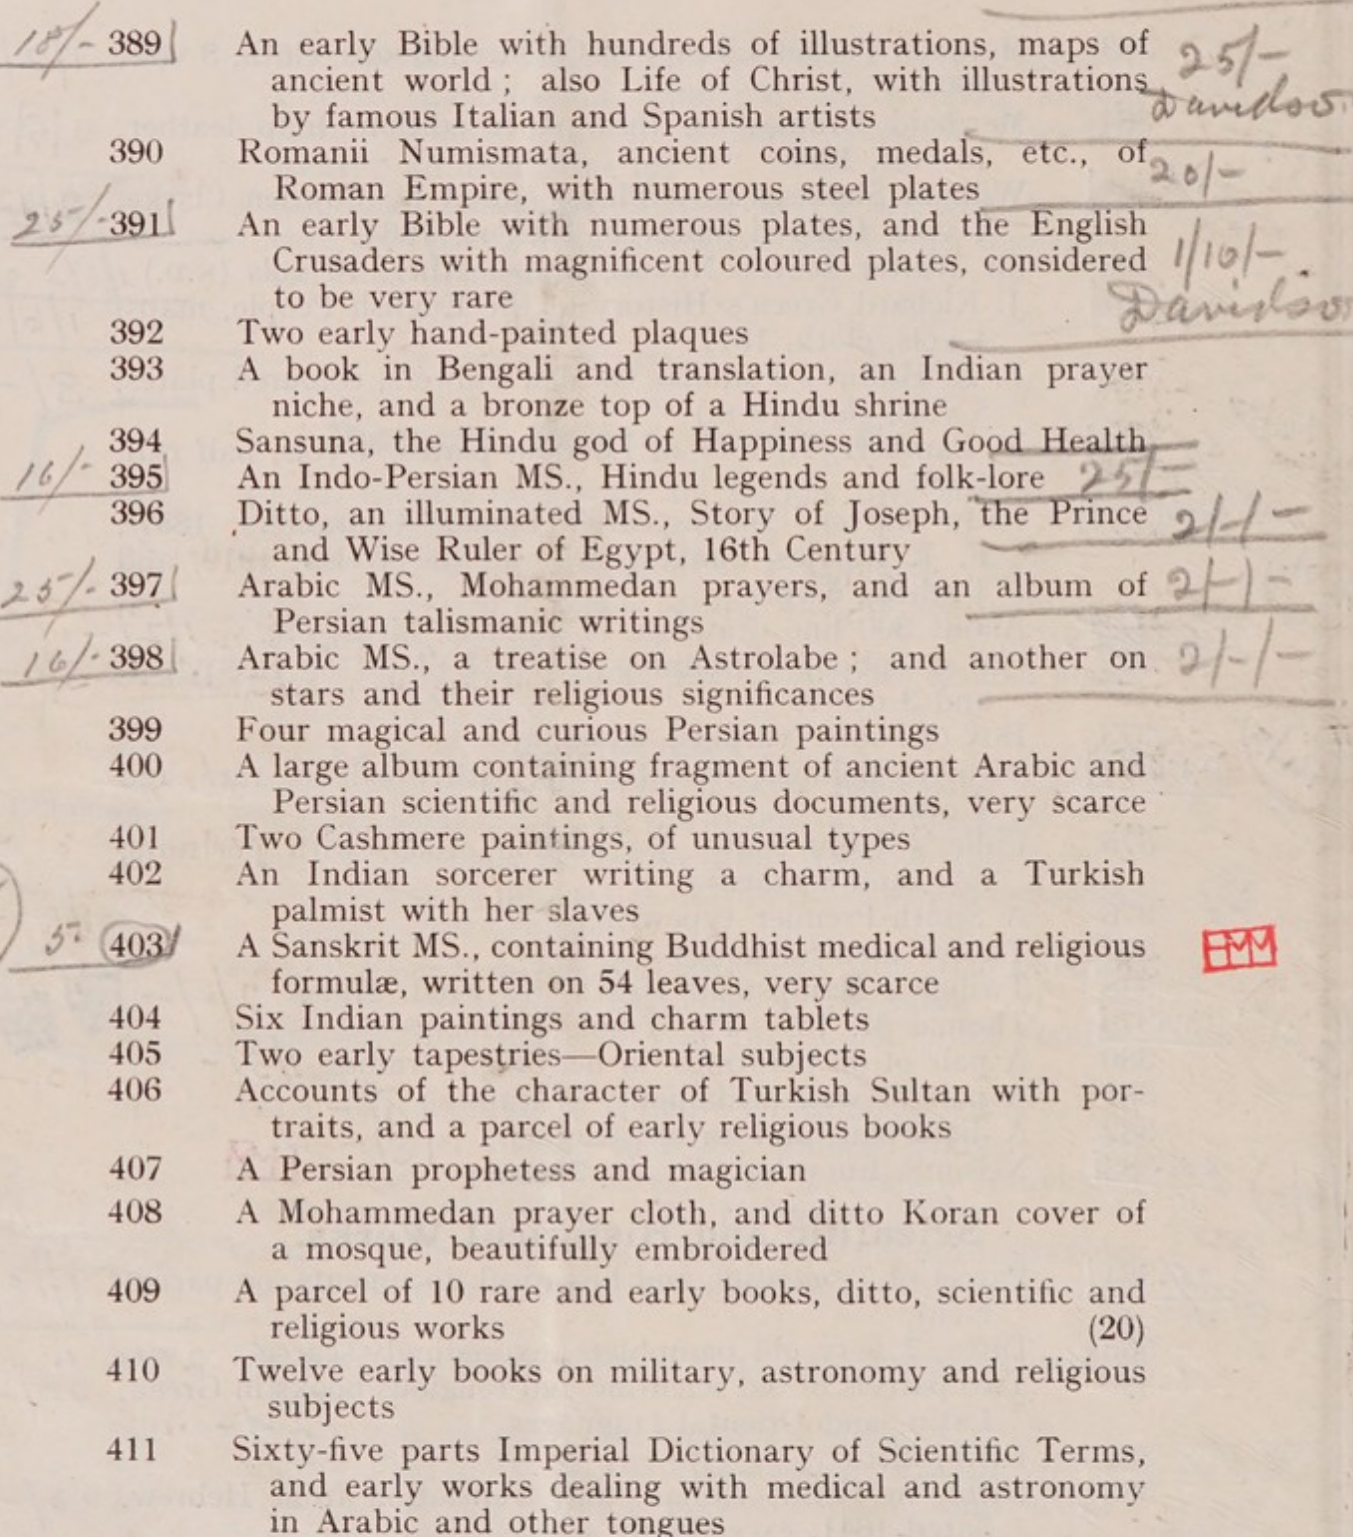 18/- 389 An early Bible with hundreds of illustrations, maps of 25/-
ancient world ; also Life of Christ, with illustrations
by famous Italian and Spanish artists
390 Romanii Numismata, ancient coins, medals, etc., of 20/-
Roman Empire, with numerous steel plates
25/- 391 An early Bible with numerous plates, and the English
Crusaders with magnificent coloured plates, considered 1/10/-
to be very rare
392 Two early hand-painted plaques
393 A book in Bengali and translation, an Indian prayer
niche, and a bronze top of a Hindu shrine
394 Sansuna, the Hindu god of Happiness and Good Health
16/- 395 An Indo-Persian MS., Hindu legends and folk-lore 25/-
396 Ditto, an illuminated MS., Story of Joseph, the Prince 2/-/-
and Wise Ruler of Egypt, 16th Century
25/- 397 Arabic MS., Mohammedan prayers, and an album of 2/-/-
Persian talismanic writings
16/- 398 Arabic MS., a treatise on Astrolabe ; and another on 2/-/-
stars and their religious significances
399 Four magical and curious Persian paintings
400 A large album containing fragment of ancient Arabic and
Persian scientific and religious documents, very scarce
401 Two Cashmere paintings, of unusual types
402 An Indian sorcerer writing a charm, and a Turkish
palmist with her slaves
403 A Sanskrit MS., containing Buddhist medical and religious
formulæ, written on 54 leaves, very scarce
404 Six Indian paintings and charm tablets
405 Two early tapestries—Oriental subjects
406 Accounts of the character of Turkish Sultan with por-
traits, and a parcel of early religious books
407 A Persian prophetess and magician
408 A Mohammedan prayer cloth, and ditto Koran cover of
a mosque, beautifully embroidered
409 A parcel of 10 rare and early books, ditto, scientific and
religious works (20)
410 Twelve early books on military, astronomy and religious
subjects
411 Sixty-five parts Imperial Dictionary of Scientific Terms,
and early works dealing with medical and astronomy
in Arabic and other tongues